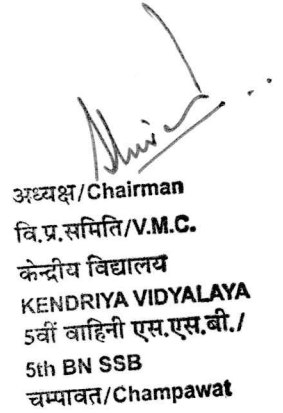 अध्यक्ष/Chairman
वि.प्र.समिति/V.M.C.
केन्द्रीय विद्यालय
KENDRIYA VIDYALAYA
5वीं वाहिनी एस.एस.बी./
5th BN SSB
चम्पावत/Champawat